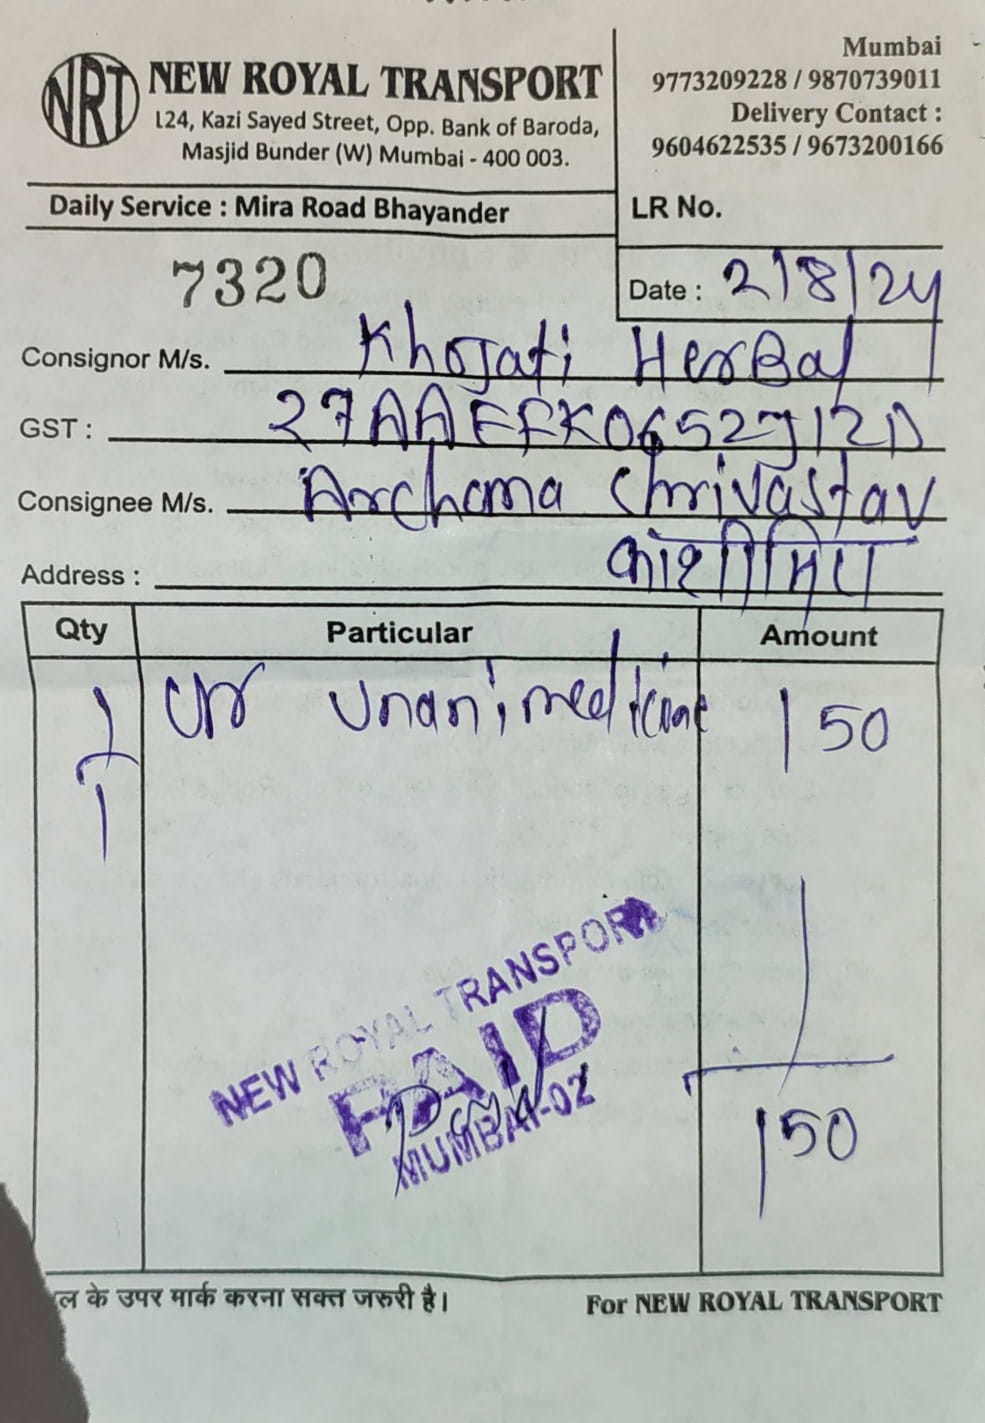 NRT NEW ROYAL TRANSPORT
124, Kazi Sayed Street, Opp. Bank of Baroda,
Masjid Bunder (W) Mumbai - 400 003.
Mumbai
9773209228 / 9870739011
Delivery Contact :
9604622535 / 9673200166
Daily Service : Mira Road Bhayander
LR No.
7320
Date : 2/8/24
Consignor M/s. Khojati Herbal
GST : 27AAEFK0652J1ZD
Consignee M/s. Archana Shrivastav
Address :
Qty Particular Amount
1 Unani medicine 150
1
NEW ROYAL TRANSPORT
PAID
Paid
MUMBAI-02
150
के उपर मार्क करना सक्त जरुरी है।
For NEW ROYAL TRANSPORT